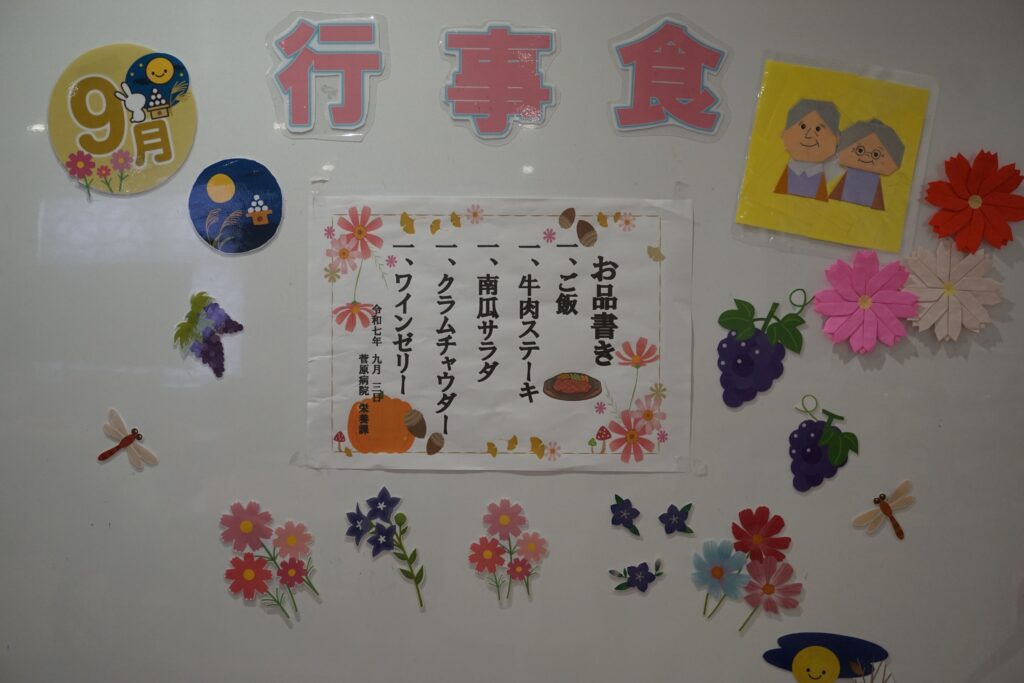 行事食
9月
お品書き
一、ご飯
一、牛肉ステーキ
一、南瓜サラダ
一、クラムチャウダー
一、ワインゼリー
令和七年 九月 三日
菅原病院 栄養課